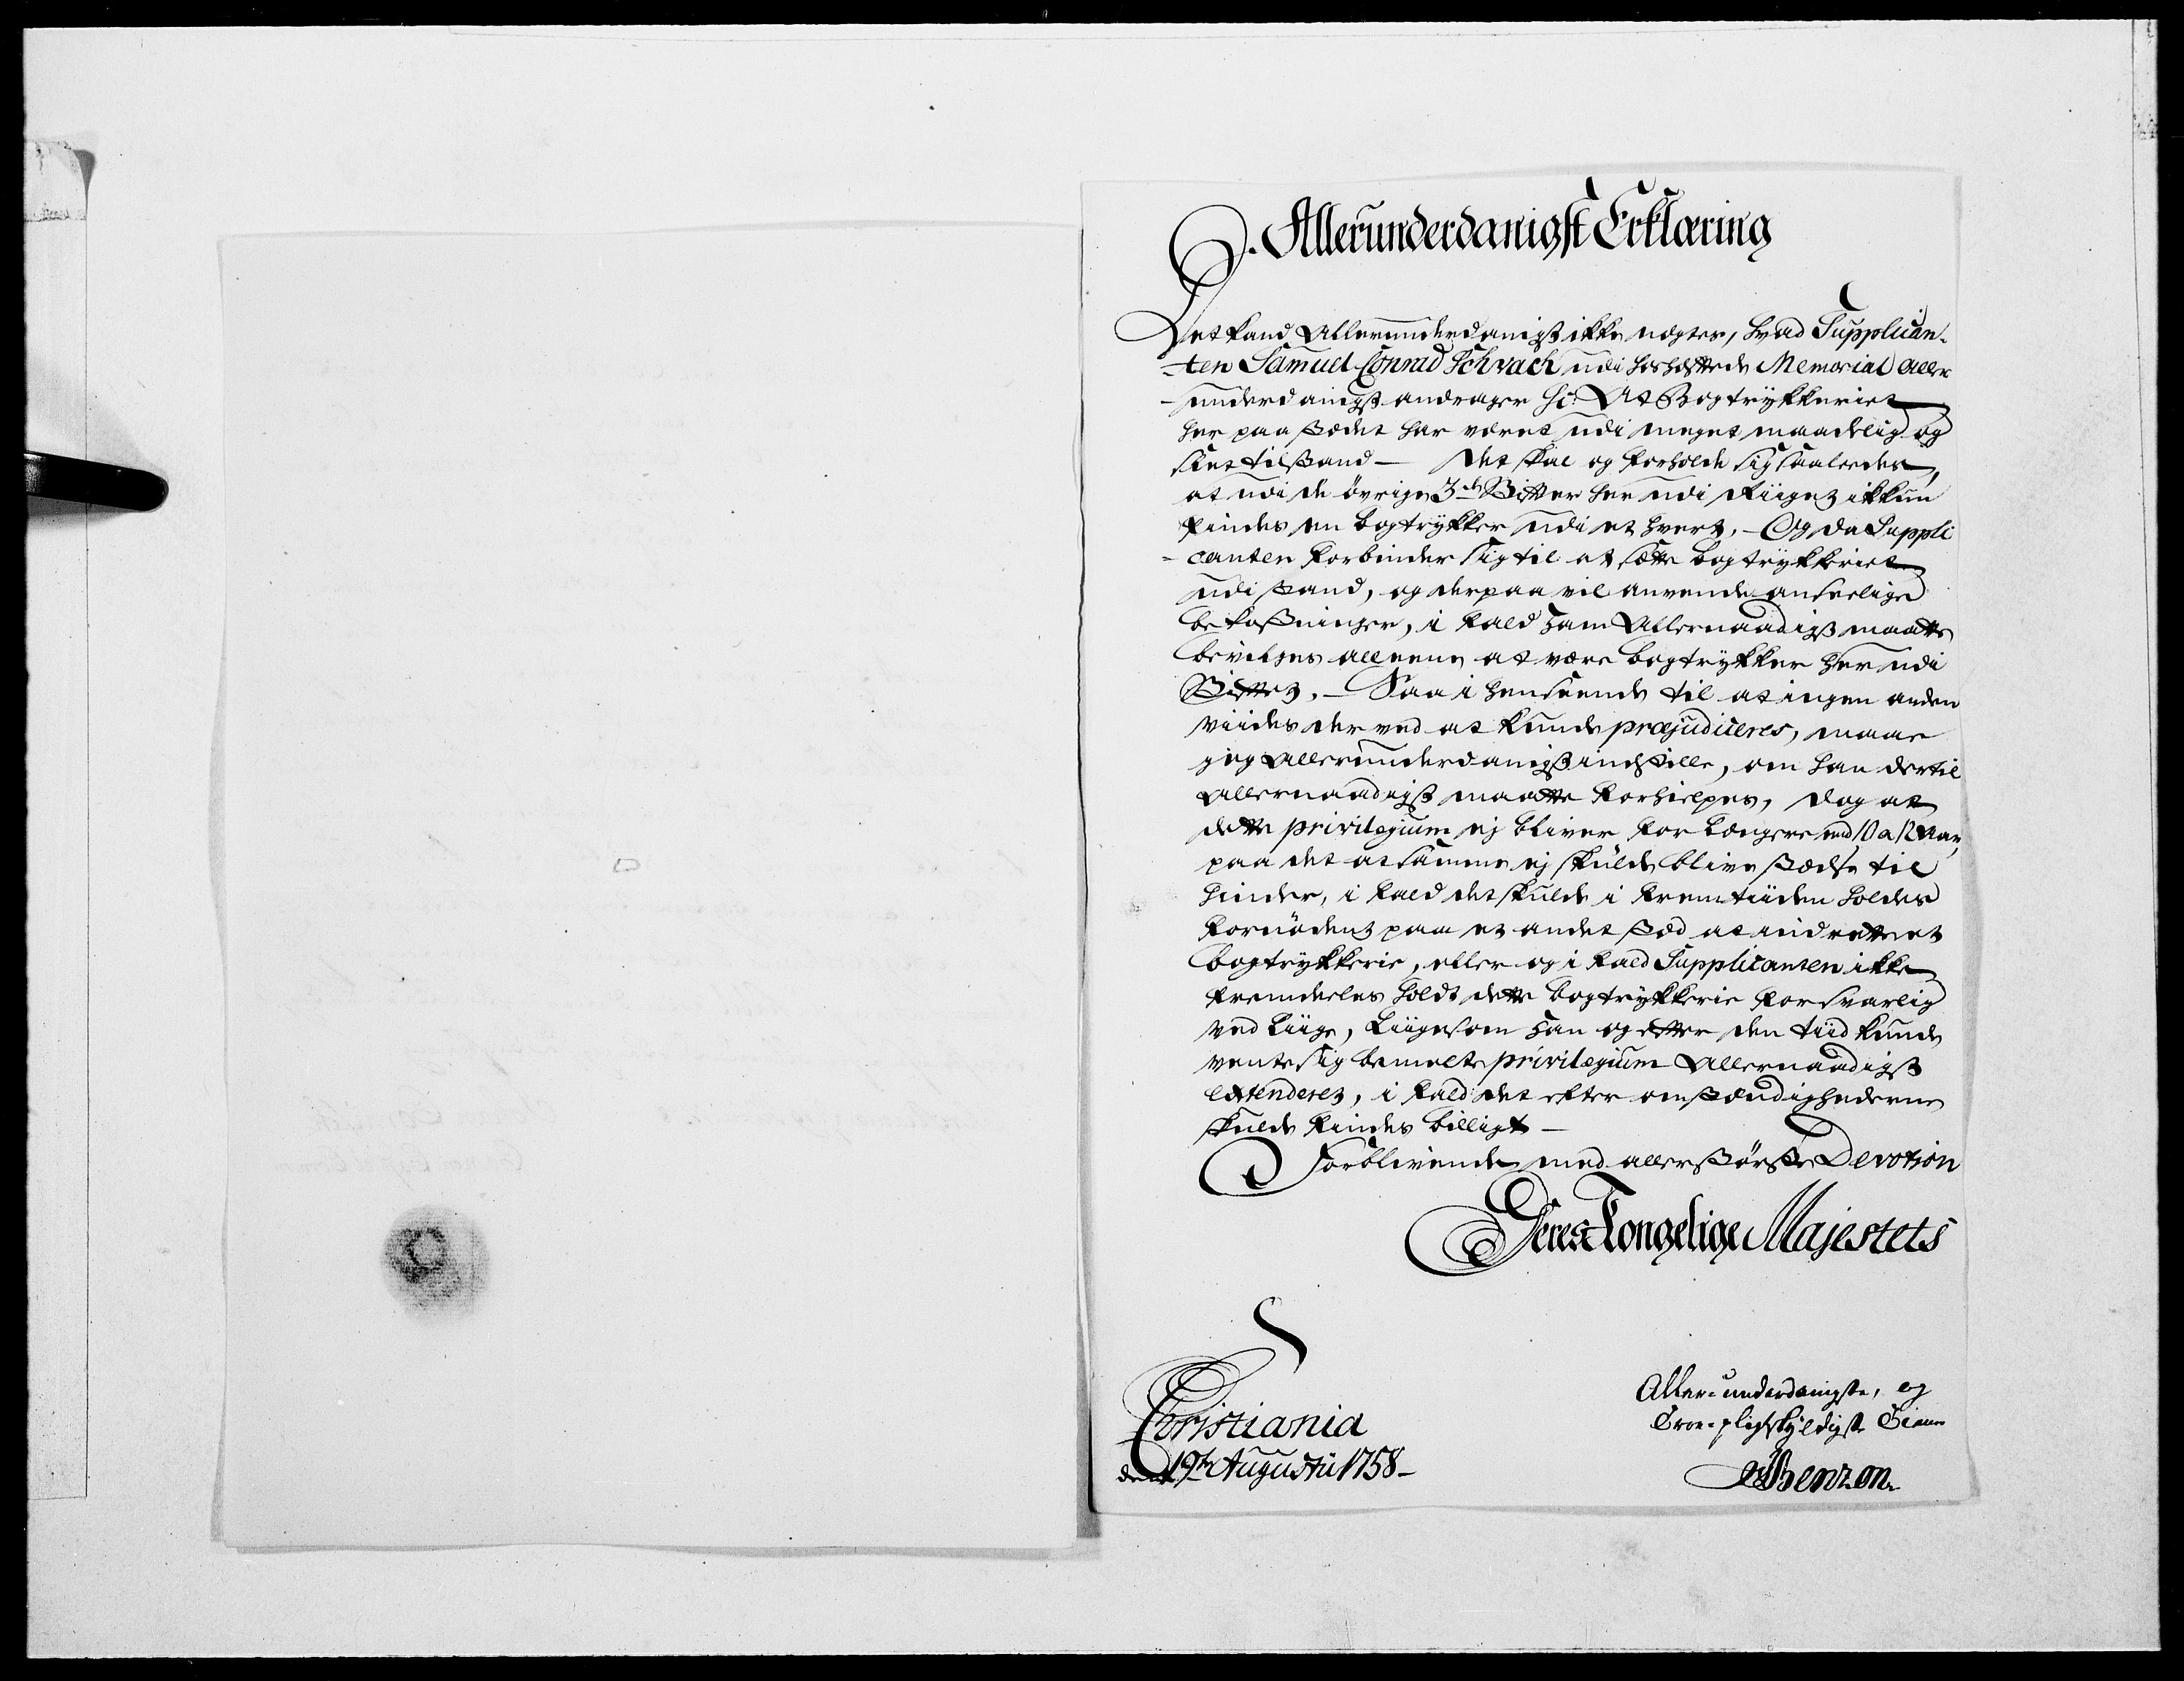 Allerunderdanigst Erklæring
Det kand Allerunderdanigst ikke nægtes, hvad Supplican-
-ten Samuel Conrad Schwach udi hoshæftede Memorial Aller
-underdanigst andrager sc: At Bogtrykkeriet
her paa stædet har været udi meget maadelig og
slet tilstand — Det skal og forholde sig saaledes,
at udi de övrige 3de Stifter her udi Riiget ikkun
findes en bogtrykker udi et hvert, - Og da Suppli
-canten forbinder sig til at sætte bogtrykkeriet
udi stand, og derpaa vil anvende anseelige
bekostninger, i fald ham Allernaadigst maatte
bevilges alleene at være bogtrykker her udi
Stiftet, - Saa i henseende til at ingen anden
viides derved at kunde præjudiceres, maae
jeg Allerunderdanigst indstille, om han dertil
Allernaadigst maatte forhielpes, dog at
dette privilegium ej bliver for længere end 10 a 12 Aar,
paa det at samme ej skulde blive stædse til
hinder, i fald det skulde i fremtiiden holdes
fornödent paa et andet stæd at indrette et
bogtrykkerie, eller og i fald Supplicanten ikke
fremdeeles holdt dette bogtrykkerie forsvarlig
ved liige, liigesom han og efter den tiid kunde
vente sig bemelte privilegium Allernaadigst
extenderet, i fald det efter omstændighederne
skulde findes billigt —
Forblivende med allerstörste Devotion
Deres Kongelige Majestets
Christiania
den 19de Augustii 1758-
Aller-underdanigste, og
Troe-pligtskyldigste Tienere
Benzon